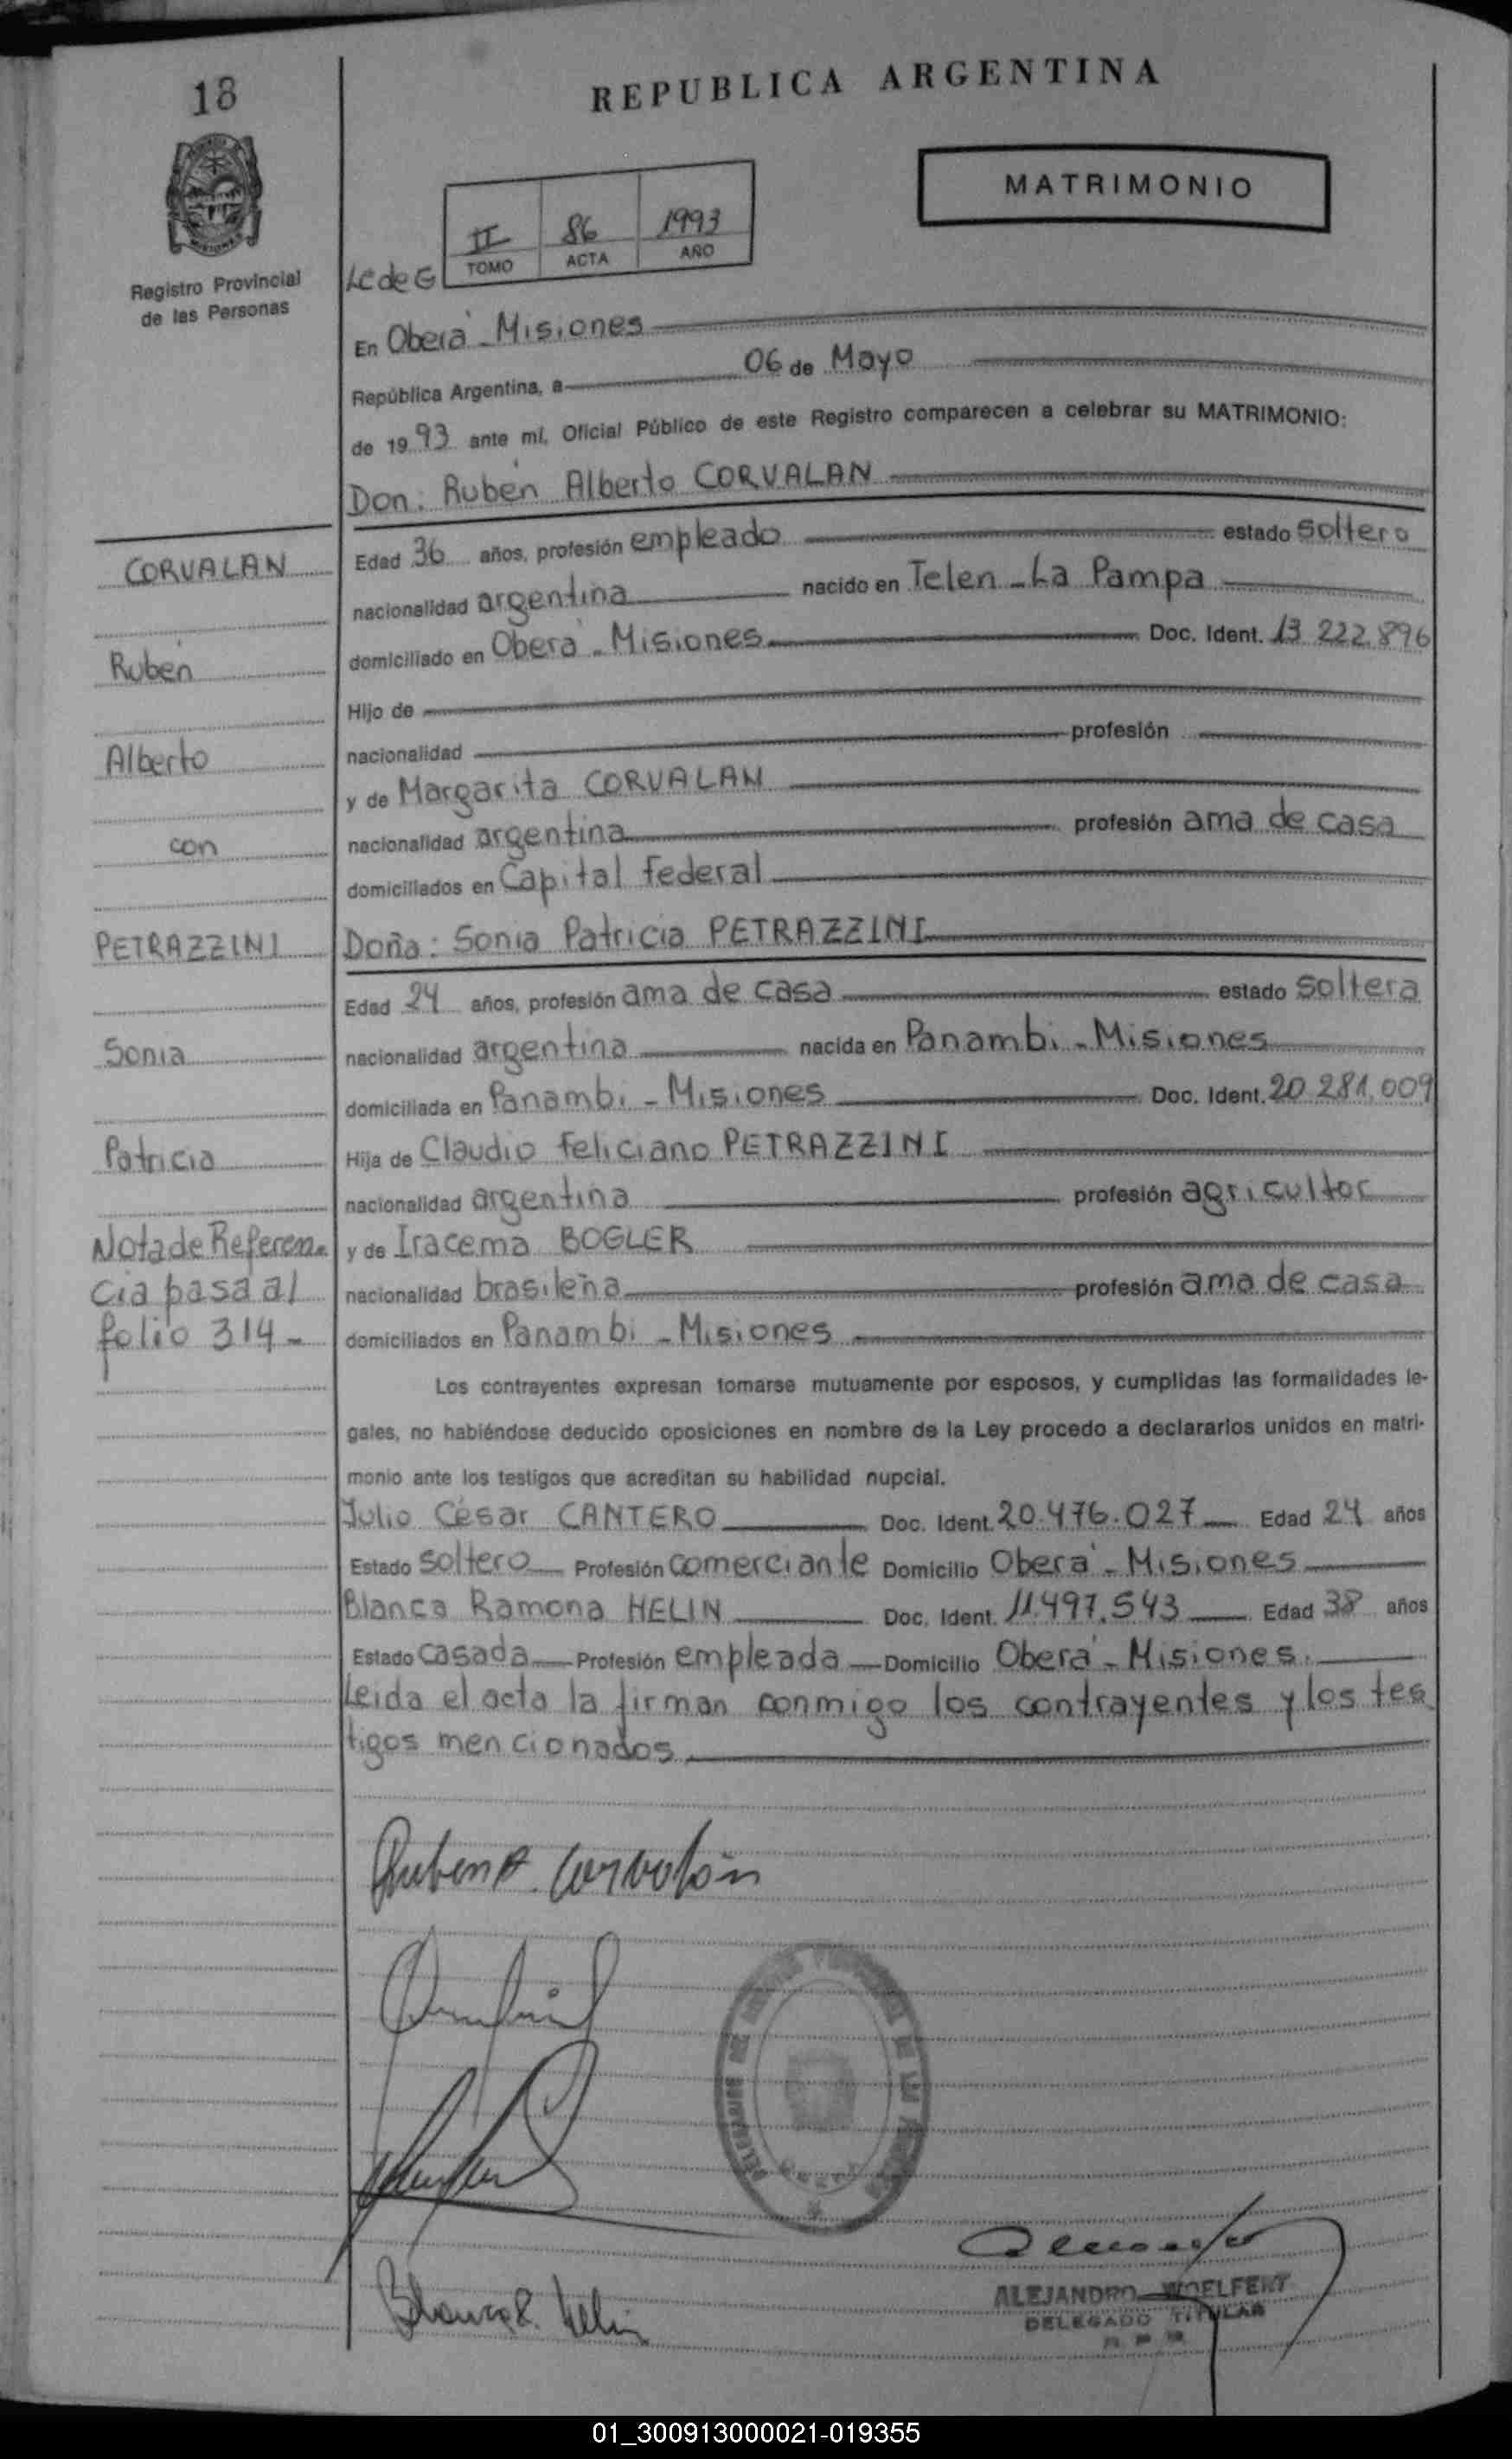 18
REPUBLICA ARGENTINA
MATRIMONIO
Registro Provincial
de las Personas
II 86 1993
TOMO ACTA AÑO
LC de G
En Oberá - Misiones
República Argentina, a 06 de Mayo
de 1993 ante mí, Oficial Público de este Registro comparecen a celebrar su MATRIMONIO:
Don: Rubén Alberto CORVALAN
Edad 36 años, profesión empleado estado soltero
CORVALAN
nacionalidad argentina nacido en Telen - La Pampa
domiciliado en Oberá - Misiones Doc. Ident. 13 222.896
Rubén
Hijo de
nacionalidad profesión
Alberto
y de Margarita CORVALAN
nacionalidad argentina profesión ama de casa
con
domiciliados en Capital Federal
PETRAZZINI
Doña: Sonia Patricia PETRAZZINI
Edad 24 años, profesión ama de casa estado soltera
Sonia
nacionalidad argentina nacida en Panambi - Misiones
domiciliada en Panambi - Misiones Doc. Ident. 20 281.009
Patricia
Hija de Claudio Feliciano PETRAZZINI
nacionalidad argentina profesión agricultor
Nota de Referen-
y de Iracema BOGLER
cia pasa al
nacionalidad brasileña profesión ama de casa
folio 314-
domiciliados en Panambi - Misiones
Los contrayentes expresan tomarse mutuamente por esposos, y cumplidas las formalidades le-
gales, no habiéndose deducido oposiciones en nombre de la Ley procedo a declararlos unidos en matri-
monio ante los testigos que acreditan su habilidad nupcial.
Julio César CANTERO Doc. Ident. 20.476.027 Edad 24 años
Estado soltero Profesión comerciante Domicilio Oberá - Misiones
Blanca Ramona HELIN Doc. Ident. 11.497.543 Edad 38 años
Estado casada Profesión empleada Domicilio Oberá - Misiones.
Leida el acta la firman conmigo los contrayentes y los tes
tigos mencionados
Ruben A. Corvalán
Blanca R. Helin
ALEJANDRO WOELFERT
DELEGADO TITULAR
01_300913000021-019355